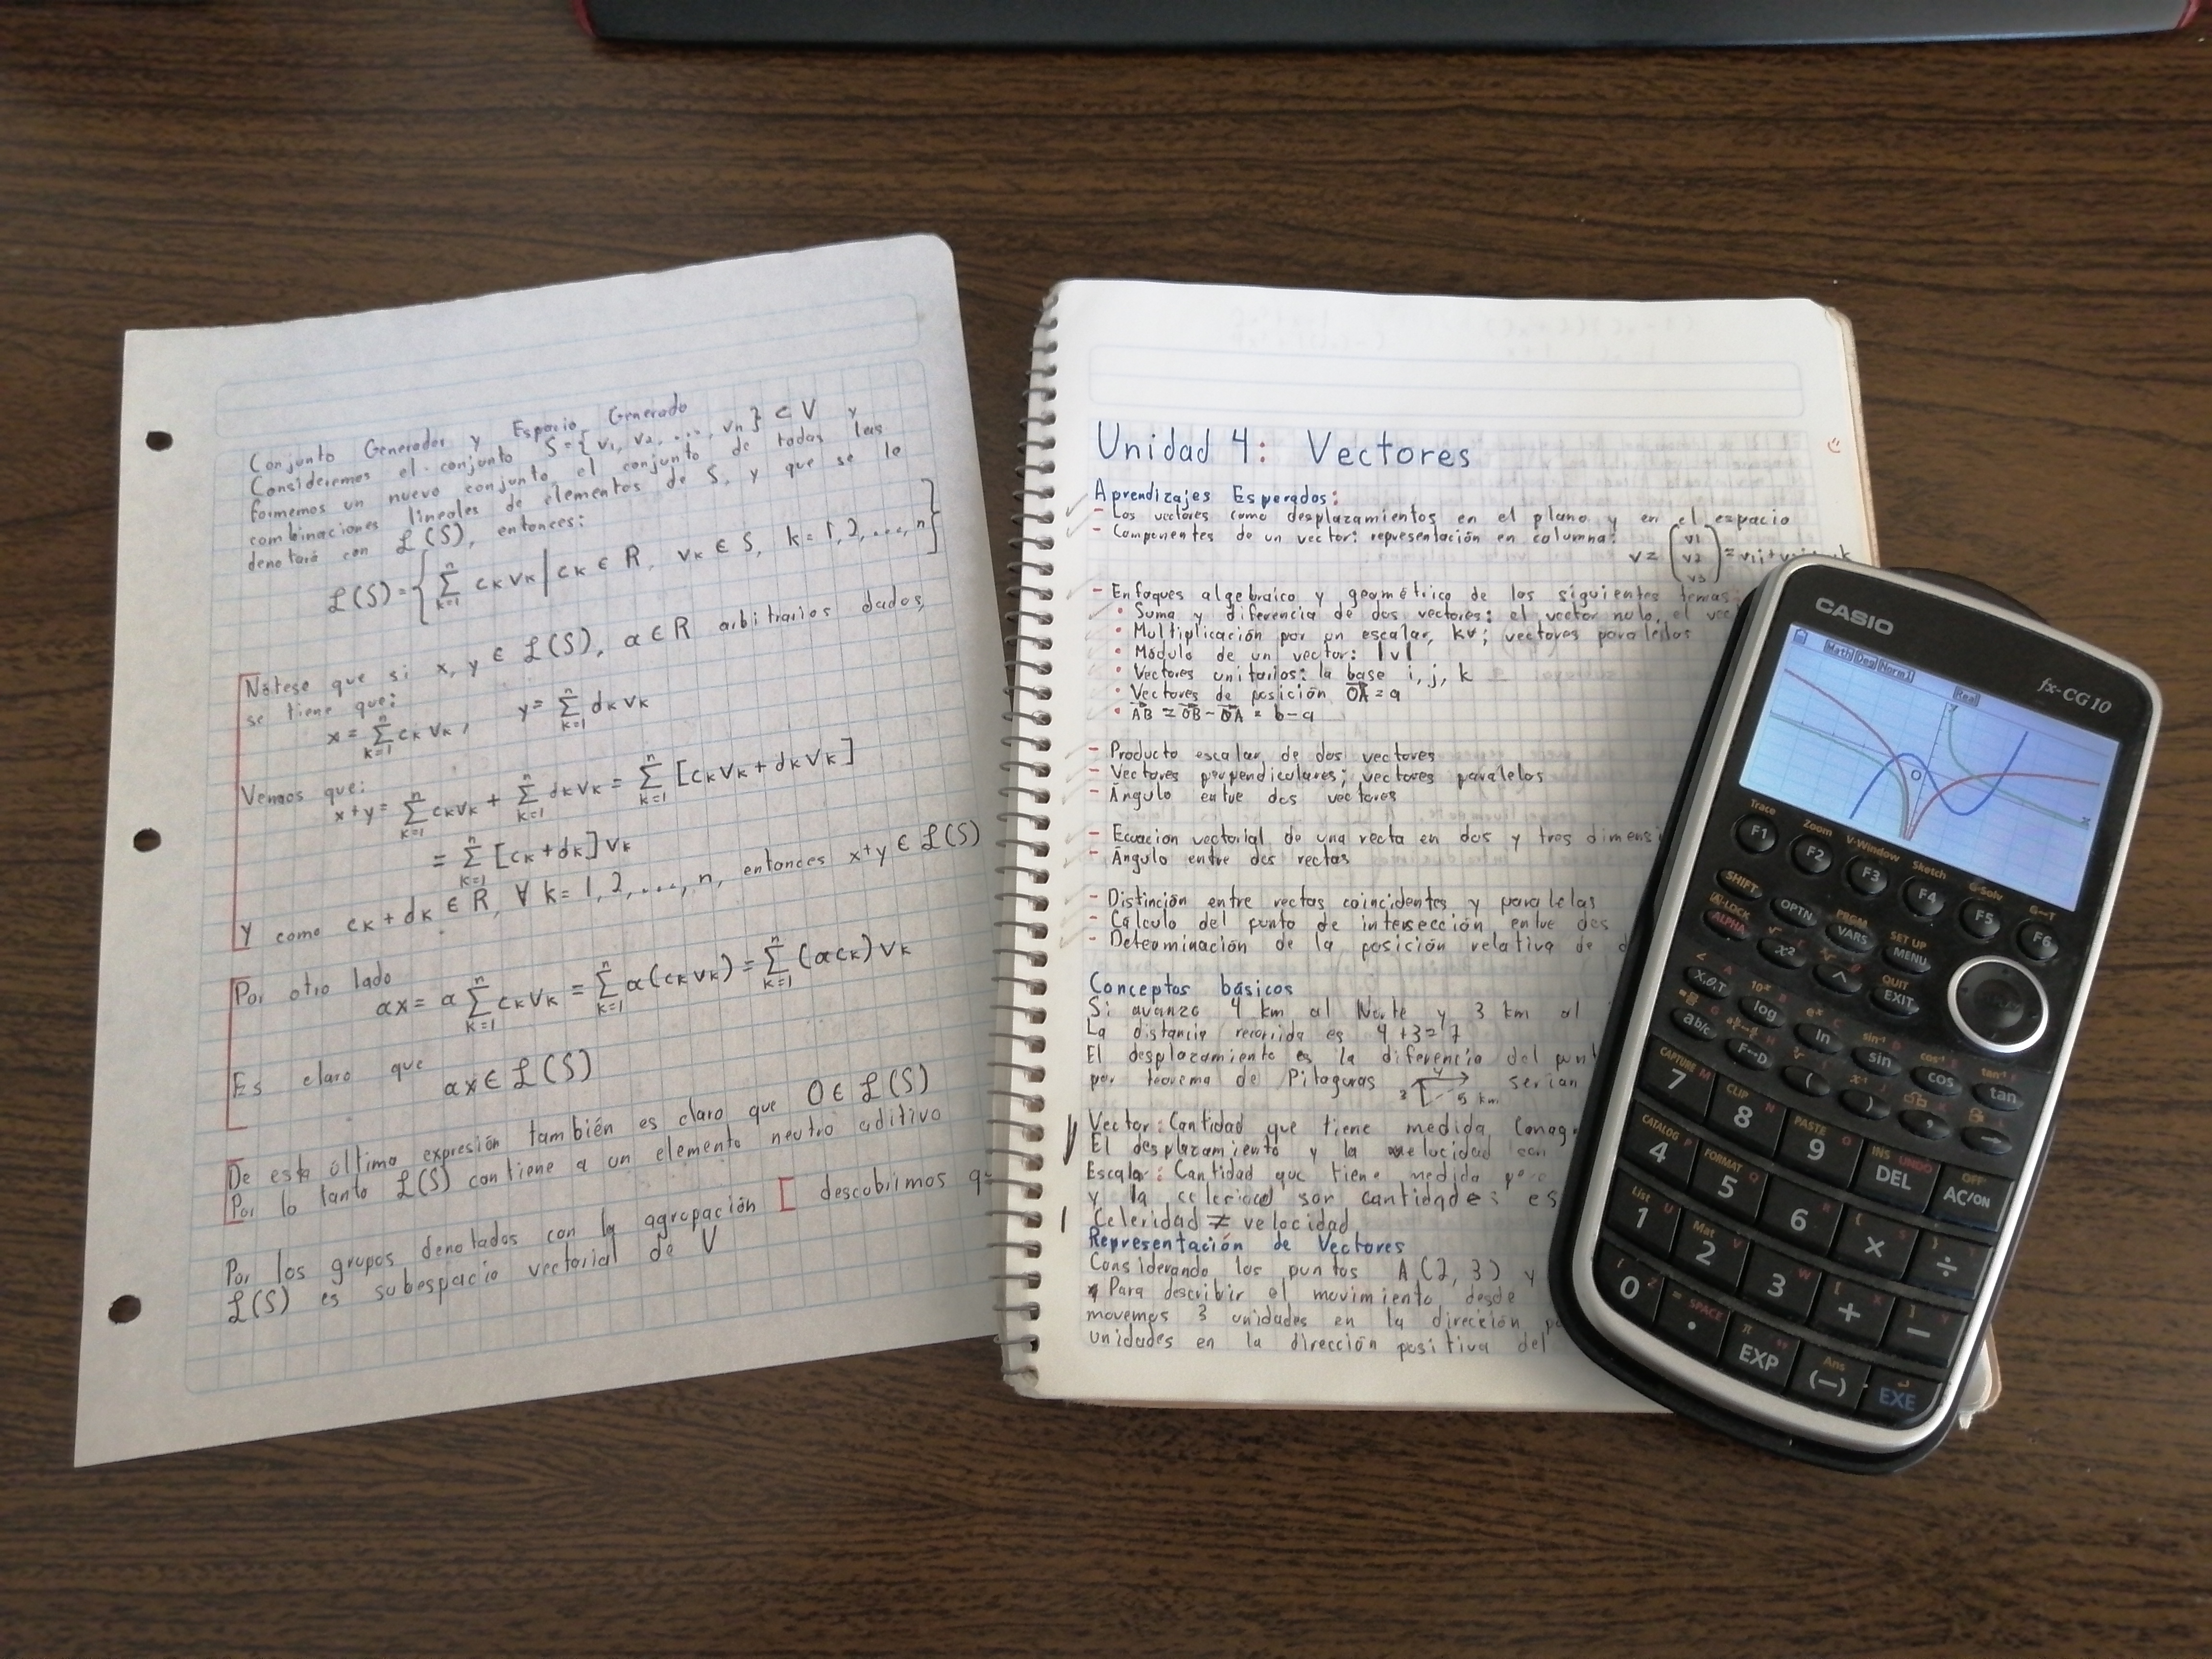 Conjunto Generador y Espacio Generado
Consideremos el conjunto S={v1, v2, ..., vn} ⊂ V y
formemos un nuevo conjunto, el conjunto de todas las
combinaciones lineales de elementos de S, y que se le
denotará con ℒ(S), entonces:
ℒ(S)={ n∑k=1 ck vk | ck ∈ R, vk ∈ S, k=1,2,...,n}
Nótese que si x, y ∈ ℒ(S), α ∈ R arbitrarios dados,
se tiene que:
x= n∑k=1 ck vk, y= n∑k=1 dk vk
Vemos que:
x+y= n∑k=1 ckvk + n∑k=1 dkvk = n∑k=1 [ckvk+dkvk]
= n∑k=1 [ck+dk]vk
Y como ck+dk ∈ R, ∀ k=1,2,...,n, entonces x+y ∈ ℒ(S)
Por otro lado
αx= α n∑k=1 ckvk = n∑k=1 α(ckvk) = n∑k=1 (αck)vk
Es claro que
αx ∈ ℒ(S)
De esta última expresión también es claro que 0 ∈ ℒ(S)
Por lo tanto ℒ(S) contiene a un elemento neutro aditivo
Por los grupos denotados con la agrupación [ descobrimos qu
ℒ(S) es subespacio vectorial de V
Unidad 4: Vectores
Aprendizajes Esperados:
- Los vectores como desplazamientos en el plano y en el espacio
- Componentes de un vector: representación en columna:
v= (v1 v2 v3) = v1i+
- Enfoques algebraico y geométrico de los siguientes temas:
• Suma y diferencia de dos vectores: el vector nulo, el vec
• Multiplicación por un escalar, kv; vectores paralelos
• Módulo de un vector: |v|
• Vectores unitarios: la base i, j, k
• Vectores de posición OA = a
• AB = OB-OA = b-a
- Producto escalar de dos vectores
- Vectores perpendiculares; vectores paralelos
- Ángulo entre dos vectores
- Ecuacion vectorial de una recta en dos y tres dimensi
- Ángulo entre dos rectas
- Distinción entre rectas coincidentes y paralelas
- Cálculo del punto de intersección entre dos
- Determinación de la posición relativa de d
Conceptos básicos
Si avanzo 4 km al Norte y 3 km al
La distancia recorrida es 4+3=7
El desplazamiento es la diferencia del punt
por teorema de Pitagoras 4 3 5 km serian
Vector: Cantidad que tiene medida (magn
El desplazamiento y la velocidad son
Escalar: Cantidad que tiene medida pero
y la celeridad son cantidades es
Celeridad ≠ velocidad
Representación de Vectores
Considerando los puntos A(2,3) y
Para describir el movimiento desde
movemos 3 unidades en la dirección po
unidades en la dirección positiva del
CASIO
fx-CG10
Math Deg Norm1 Real
y
O
x
Trace Zoom V-Window Sketch G-Solv G↔T
F1 F2 F3 F4 F5 F6
SHIFT OPTN PRGM VARS SET UP MENU
A-LOCK ALPHA x² ^ QUIT EXIT
X,θ,T log ln sin cos tan
10ˣ eˣ sin⁻¹ cos⁻¹ tan⁻¹
ab/c F↔D ( ) , →
CAPTURE CLIP PASTE INS UNDO OFF
7 8 9 DEL AC/ON
CATALOG FORMAT
4 5 6 × ÷
List Mat
1 2 3 + −
SPACE π Ans
0 . EXP (−) EXE